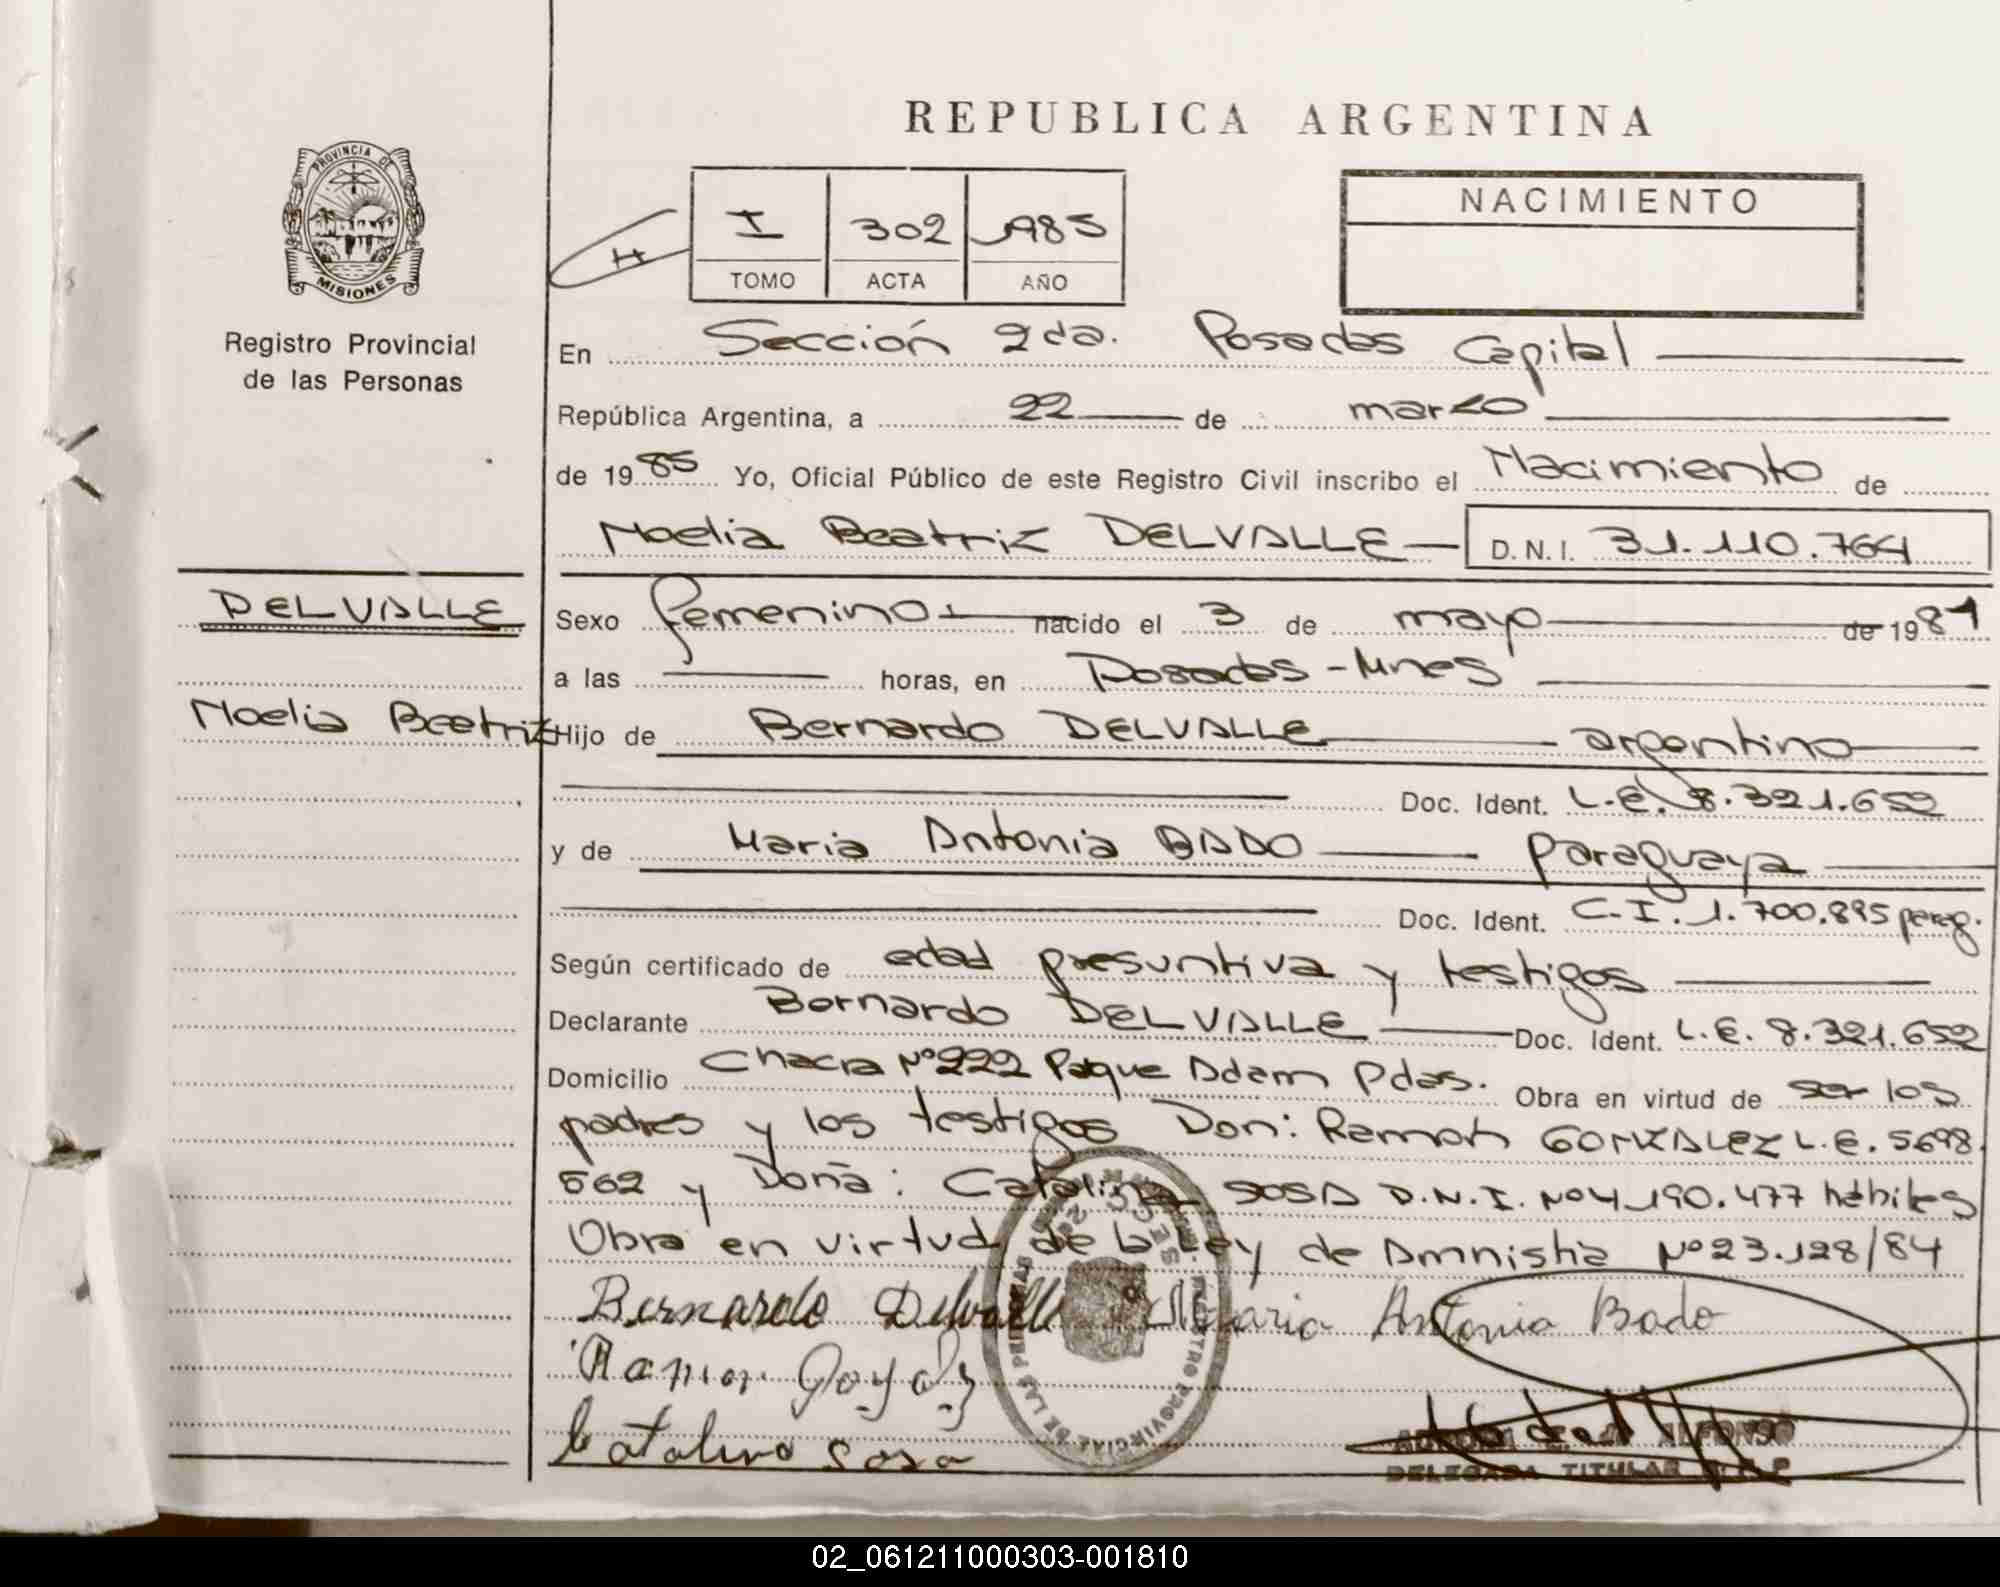 REPUBLICA ARGENTINA
PROVINCIA DE
MISIONES
Registro Provincial
de las Personas
H
I 302 1985
TOMO ACTA AÑO
NACIMIENTO
En Sección 2da. Posadas Capital
República Argentina, a 22 de marzo
de 1985 Yo, Oficial Público de este Registro Civil inscribo el Nacimiento de
Noelia Beatriz DELVALLE D.N.I. 31.110.764
DELVALLE
Noelia Beatriz
Sexo femenino nacido el 3 de mayo de 1981
a las horas, en Posadas - Mnes
Hijo de Bernardo DELVALLE argentino
Doc. Ident. L.E. 8.321.652
y de Maria Antonia BADO paraguaya
Doc. Ident. C.I. 1.700.895 parag.
Según certificado de edad presuntiva y testigos
Declarante Bernardo DELVALLE Doc. Ident. L.E. 8.321.652
Domicilio Chacra Nº 222 Paque Adam Pdas. Obra en virtud de ser los
padres y los testigos Don: Ramon GONZALEZ L.E. 5698
562 y Doña: Catalina SOSA D.N.I. Nº 4.190.477 hábiles
Obra en virtud de la Ley de Amnistia Nº 23.128/84
Bernardo Delvalle Maria Antonia Bado
Ramon
Catalina Sosa
REGISTRO PROVINCIAL DE LAS PERSONAS
ALFONSO
DELEGADA TITULAR
02_061211000303-001810